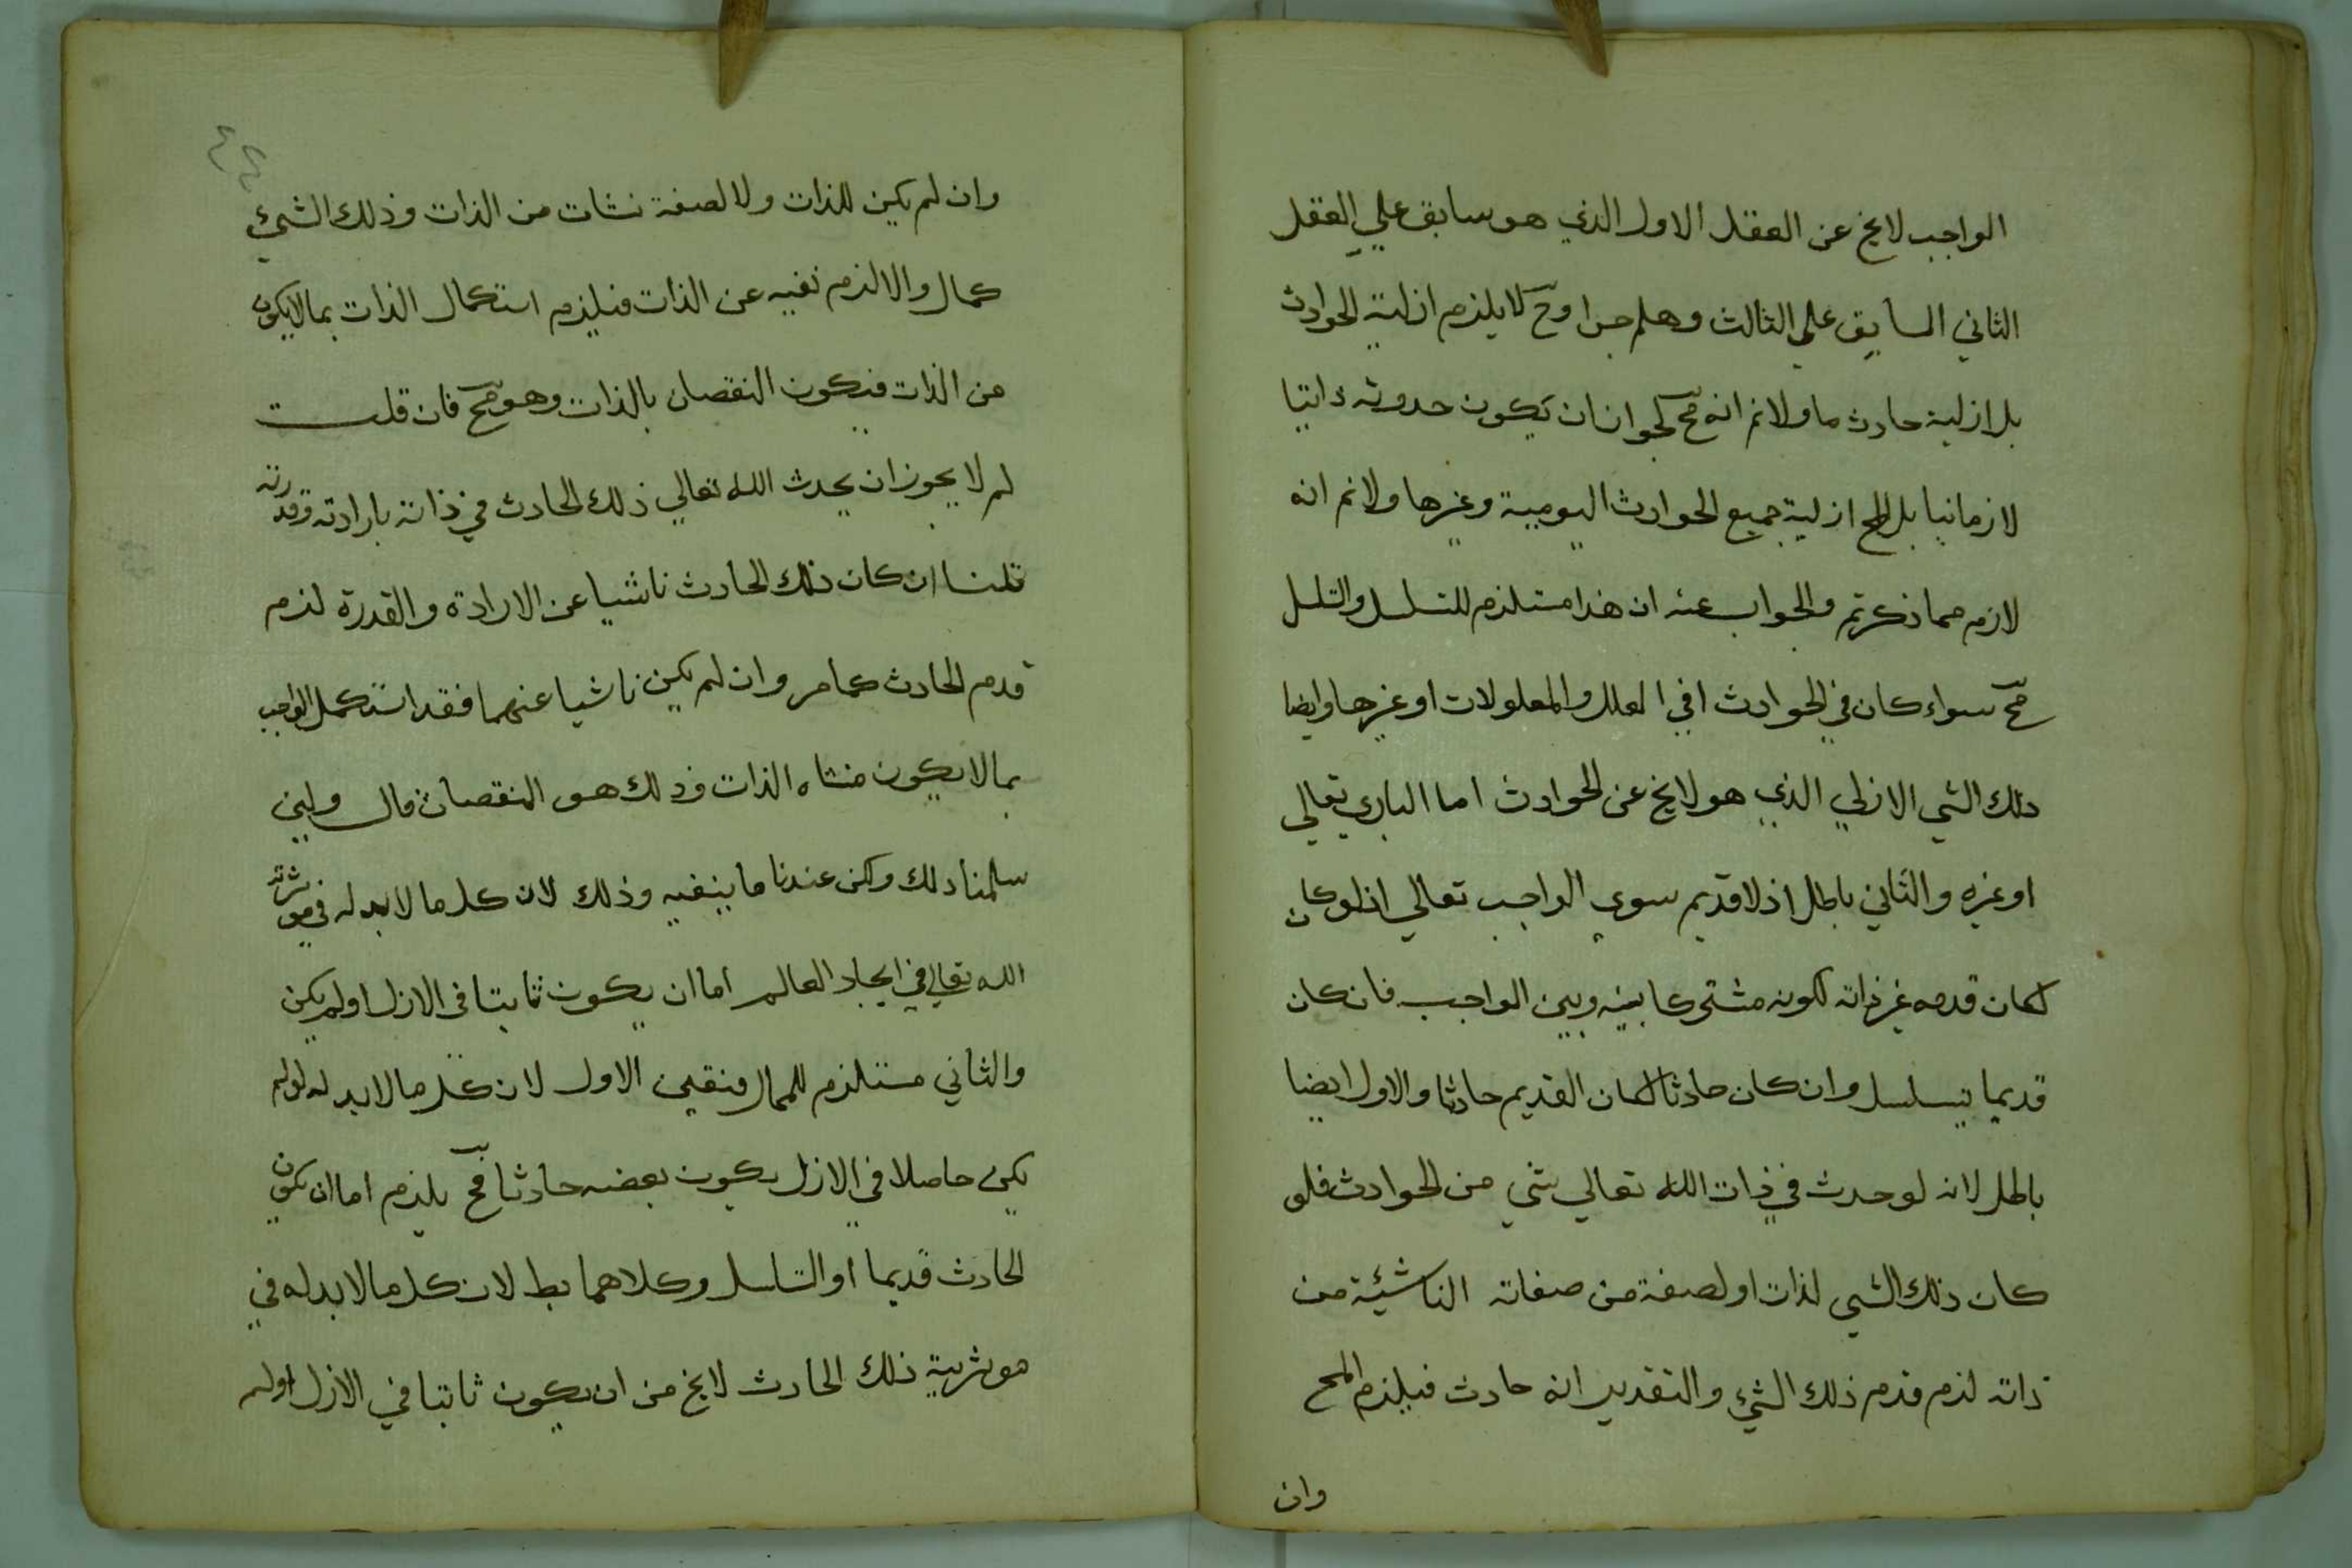 الواجب لا يخ عن العقل الاول الذي هو سابق علي العقل
الثاني السابق علي الثالث وهلم جرا وح لا يلزم ازلية الحوادث
بل ازلية حادث ما ولا نم انه مح لجواز ان يكون حدوثه ذاتيا
لا زمانيا بل المح ازلية جميع الحوادث اليومية وغيرها ولا نم انه
لازم مما ذكرتم والجواب عنه ان هذا مستلزم للتسلسل والتسلسل
مح سواء كان في الحوادث افي العلل والمعلولات او غيرها وايضا
ذلك الشي الازلي الذي هو لا يخ عن الحوادث اما الباري تعالي
او غيره والثاني باطل اذ لا قديم سوي الواجب تعالي اذ لو كان
لكان قدمه غير ذاته لكونه مشتركا بينه وبين الواجب فان كان
قديما يتسلسل وان كان حادثا لكان القديم حادثا والاول ايضا
باطل لانه لو حدث في ذات الله تعالي شي من الحوادث فلو
كان ذلك الشي لذات او لصفة من صفاته الناشئة من
ذاته لزم قدم ذلك الشئ والتقدير انه حادث فيلزم المح
وان
٤٤
وان لم يكن للذات ولا لصفة نشات من الذات وذلك الشئ
كمال والا لزم نفيه عن الذات فيلزم استكمال الذات بما لا يكون
من الذات فيكون النقصان بالذات وهو مح فان قلت
لم لا يجوز ان يحدث الله تعالي ذلك الحادث في ذاته بارادته وقدرته
قلنا ان كان ذلك الحادث ناشيا عن الارادة والقدرة لزم
قدم الحادث كما مر وان لم يكن ناشيا عنهما فقد استكمل الواجب
بما لا يكون منشاه الذات وذلك هو النقصان قال ولين
سلمنا ذلك ولكن عندنا ما ينفيه وذلك لان كل ما لا بد له في موثرته
الله تعالي في ايجاد العالم اما ان يكون ثابتا في الازل او لم يكن
والثاني مستلزم للمحال فتعين الاول لان كل ما لا بد له لو لم
يكن حاصلا في الازل يكون بعضه حادثا فح يلزم اما ان يكون
الحادث قديما او التسلسل وكلاهما بط لان كل ما لا بد له في
موثرية ذلك الحادث لا يخ من ان يكون ثابتا في الازل او لم